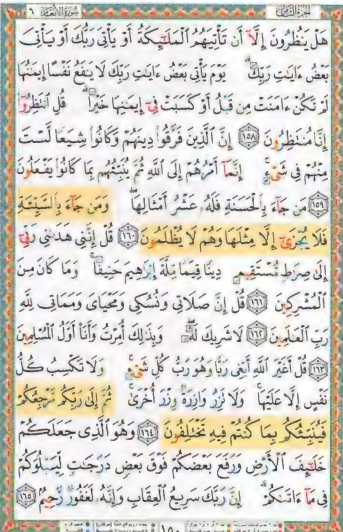 سُورَةُ الأَنْعَامِ ٦
هَلْ يَنظُرُونَ إِلَّا أَن تَأْتِيَهُمُ الْمَلَٰٓئِكَةُ أَوْ يَأْتِيَ رَبُّكَ أَوْ يَأْتِيَ
بَعْضُ ءَايَٰتِ رَبِّكَ يَوْمَ يَأْتِي بَعْضُ ءَايَٰتِ رَبِّكَ لَا يَنفَعُ نَفْسًا إِيمَٰنُهَا
لَمْ تَكُنْ ءَامَنَتْ مِن قَبْلُ أَوْ كَسَبَتْ فِىٓ إِيمَٰنِهَا خَيْرًا قُلِ انتَظِرُوٓا
إِنَّا مُنتَظِرُونَ ١٥٨ إِنَّ الَّذِينَ فَرَّقُوا دِينَهُمْ وَكَانُوا شِيَعًا لَّسْتَ
مِنْهُمْ فِى شَىْءٍ إِنَّمَآ أَمْرُهُمْ إِلَى اللَّهِ ثُمَّ يُنَبِّئُهُم بِمَا كَانُوا يَفْعَلُونَ
١٥٩ مَن جَآءَ بِالْحَسَنَةِ فَلَهُ عَشْرُ أَمْثَالِهَا وَمَن جَآءَ بِالسَّيِّئَةِ
فَلَا يُجْزَىٰٓ إِلَّا مِثْلَهَا وَهُمْ لَا يُظْلَمُونَ ١٦٠ قُلْ إِنَّنِى هَدَىٰنِى رَبِّىٓ
إِلَىٰ صِرَٰطٍ مُّسْتَقِيمٍ دِينًا قِيَمًا مِّلَّةَ إِبْرَٰهِيمَ حَنِيفًا وَمَا كَانَ مِنَ
الْمُشْرِكِينَ ١٦١ قُلْ إِنَّ صَلَاتِى وَنُسُكِى وَمَحْيَاىَ وَمَمَاتِى لِلَّهِ
رَبِّ الْعَٰلَمِينَ ١٦٢ لَا شَرِيكَ لَهُ وَبِذَٰلِكَ أُمِرْتُ وَأَنَا۠ أَوَّلُ الْمُسْلِمِينَ
١٦٣ قُلْ أَغَيْرَ اللَّهِ أَبْغِى رَبًّا وَهُوَ رَبُّ كُلِّ شَىْءٍ وَلَا تَكْسِبُ كُلُّ
نَفْسٍ إِلَّا عَلَيْهَا وَلَا تَزِرُ وَازِرَةٌ وِزْرَ أُخْرَىٰ ثُمَّ إِلَىٰ رَبِّكُم مَّرْجِعُكُمْ
فَيُنَبِّئُكُم بِمَا كُنتُمْ فِيهِ تَخْتَلِفُونَ ١٦٤ وَهُوَ الَّذِى جَعَلَكُمْ
خَلَٰٓئِفَ الْأَرْضِ وَرَفَعَ بَعْضَكُمْ فَوْقَ بَعْضٍ دَرَجَٰتٍ لِّيَبْلُوَكُمْ
فِى مَآ ءَاتَىٰكُمْ إِنَّ رَبَّكَ سَرِيعُ الْعِقَابِ وَإِنَّهُ لَغَفُورٌ رَّحِيمٌ ١٦٥
١٥٠